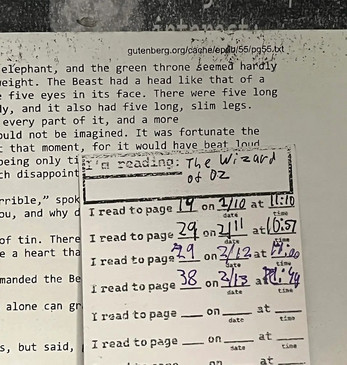 gutenberg.org/cache/epub/55/pg55.txt
elephant, and the green throne seemed hardly
eight. The Beast had a head like that of a
five eyes in its face. There were five long
ly, and it also had five long, slim legs.
every part of it, and a more
ould not be imagined. It was fortunate the
that moment, for it would have beat loud
being only ti
ch disappoint
rrible,” spok
ou, and why d
of tin. There
e a heart tha
manded the Be
alone can gr
s, but said,
I'm reading: The Wizard
of OZ
I read to page 19 on 2/10 at 11:10
date time
I read to page 29 on 2/11 at 10:57
date time
I read to page 29 on 2/12 at
date time
I read to page 38 on 2/13 at
date time
I read to page ___ on ___ at ___
date time
I read to page ___ on ___ at ___
date time
on ___ at